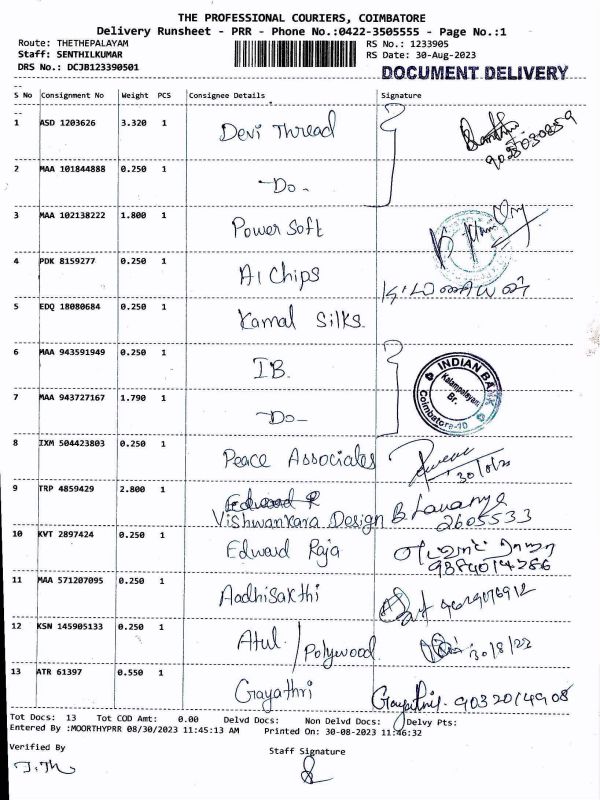 THE PROFESSIONAL COURIERS, COIMBATORE
Delivery Runsheet - PRR - Phone No.:0422-3505555 - Page No.:1
Route: THETHEPALAYAM RS No.: 1233905
Staff: SENTHILKUMAR RS Date: 30-Aug-2023
DRS No.: DCJB123390501 DOCUMENT DELIVERY
S No Consignment No Weight PCS Consignee Details Signature
1 ASD 1203626 3.320 1 Devi Thread
2 MAA 101844888 0.250 1 -Do-
3 MAA 102138222 1.800 1 Power Soft
4 PDK 8159277 0.250 1 A1 Chips
5 EDQ 18080684 0.250 1 Kamal Silks.
6 MAA 943591949 0.250 1 IB. INDIAN BANK
7 MAA 943727167 1.790 1 -Do- Kalampalayam Br. Coimbatore-10
8 IXM 504423803 0.250 1 Peace Associates
9 TRP 4859429 2.800 1 Edward R
Vishwankara Design B. Lavanya
2605533
10 KVT 2897424 0.250 1 Edward Raja
9384014286
11 MAA 571207095 0.250 1 Aadhisakthi
12 KSN 145905133 0.250 1 Atul / Polywood. 30/8/23
13 ATR 61397 0.550 1 Gayathri Gayathri. 9032014908
Tot Docs: 13 Tot COD Amt: 0.00 Delvd Docs: Non Delvd Docs: Delvy Pts:
Entered By :MOORTHYPRR 08/30/2023 11:45:13 AM Printed On: 30-08-2023 11:46:32
Verified By Staff Signature